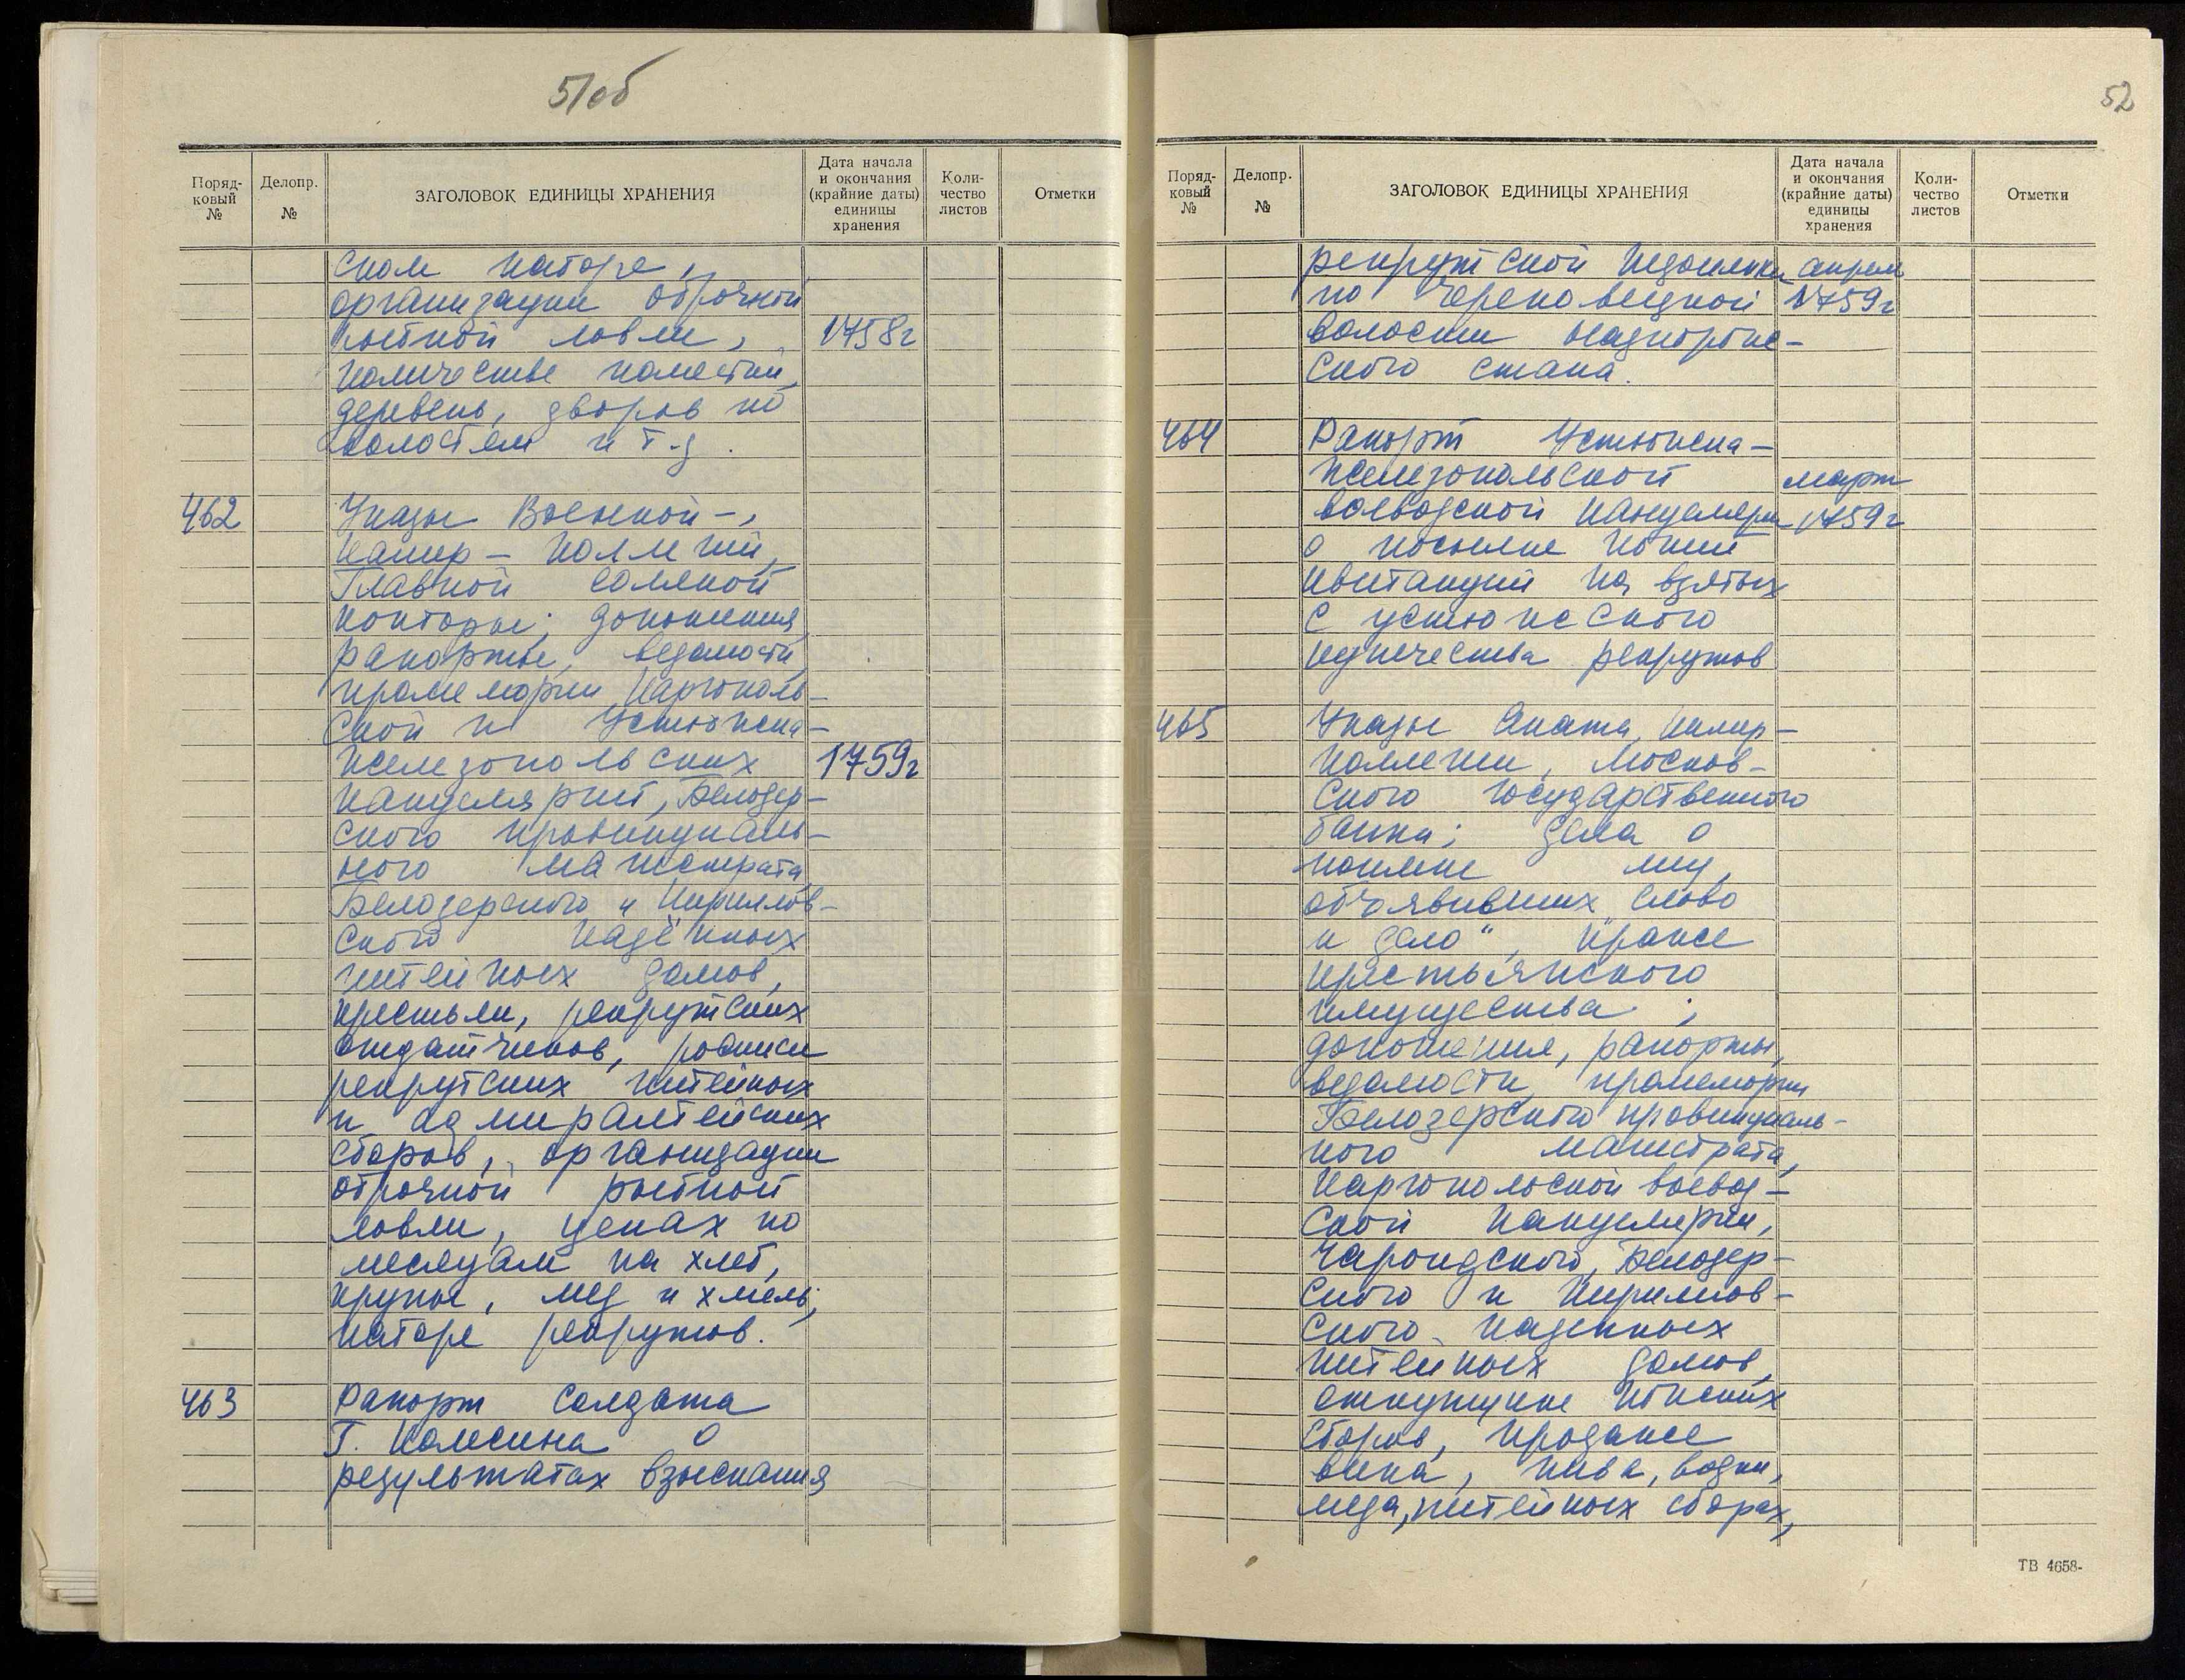 51об
Поряд-
ковый
№
Делопр.
№
ЗАГОЛОВОК ЕДИНИЦЫ ХРАНЕНИЯ
Дата начала
и окончания
(крайние даты)
единицы
хранения
Коли-
чество
листов
Отметки
ском наборе,
организации оброчной
рыбной ловли, 1758г
количестве поместий,
деревень, дворов по
волостям и т.д.
462 Указы Военной-,
Камер-Коллегий,
Главной соляной
конторы; доношения,
рапорты, ведомости,
промемории Каргополь-
ской и Устюжена-
Железопольских 1759г
канцелярий, Белозер-
ского провинциаль-
ного магистрата,
Белозерского и Кириллов-
ского казённых
питейных домов,
крестьян, рекрутских
отдатчиков, росписи
рекрутских питейных
и адмиралтейских
сборов, организации
оброчной рыбной
ловли, ценах по
месяцам на хлеб,
крупы, мед и хмель;
наборе рекрутов.
463 Рапорт солдата
Г. Колесина о
результатах взыскания
52
Поряд-
ковый
№
Делопр.
№
ЗАГОЛОВОК ЕДИНИЦЫ ХРАНЕНИЯ
Дата начала
и окончания
(крайние даты)
единицы
хранения
Коли-
чество
листов
Отметки
рекрутской недоимки апрель
по Череповецкой 1759г
волости Надпорож-
ского стана.
464 Рапорт Устюжена-
Железопольской март
воеводской канцелярии 1759г
о посылке копий
квитанций на взятых
с устюжеского
купечества рекрутов
465 Указы Сената, Камер-
Коллегии, Москов-
ского государственного
банка; дела о
поимке лиц,
объявивших "слово
и дело", краже
крестьянского
имущества;
доношения, рапорты,
ведомости, промемории
Белозерского провинциаль-
ного магистрата,
Каргопольской воевод-
ской канцелярии,
Чарондского, Белозер-
ского и Кириллов-
ского казенных
питейных домов,
откупщике конских
сборов, продаже
вина, пива, водки,
меда, питейных сборах,
ТВ 4658-